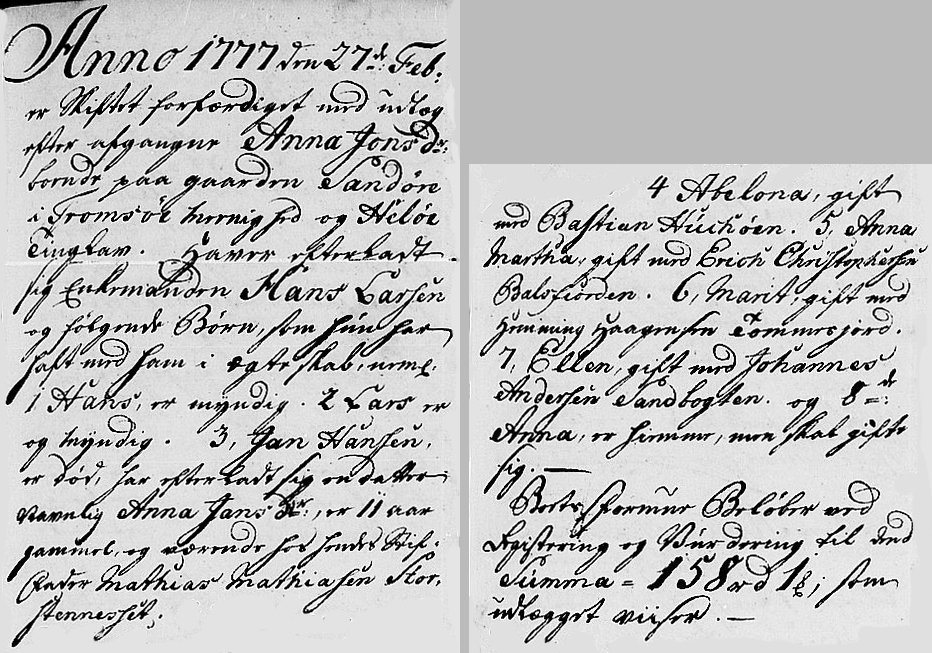 Anno 1777 den 27de Feb:
er Skiftet forfærdiget med udlæg
efter afgangne Anna Jons dr:
boende paa gaarden Sandøre
i Tromsøe Menighed og Heløe
Tinglav. Haver efterladt
sig Enkemanden Hans Larsen
og følgende Børn, som hun har
haft med ham i ægteskab, neml:
1 Hans, er myndig. 2 Lars er
og myndig. 3, Jan Hansen,
er død, har efterladt sig en datter
Navnlig Anna Jans dr:, er 11 aar
gammel, og værende hos hendes Stif-
fader Mathias Mathiasen Stor-
stennesset.
4 Abelona, gift
med Bastian Huchøen. 5, Anna
Martha, gift med Erich Christophersen
Balsfiorden. 6, Marit, gift med
Henning Haagensen Tommesjord.
7, Ellen, gift med Johannes
Andersen Sandbogten. og 8de
Anna, er hiemme, men skal gifte
sig. —
Boets formue Beløber ved
Registering og Vurdering til End
Summa = 158 rd 1 ß; som
udlægget viiser. —